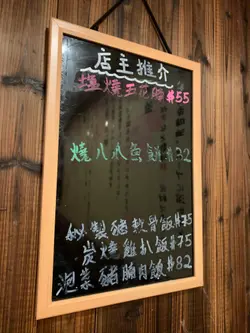 店主推介
塩燒玉花腩 $55
燒八爪魚餅 $32
秘製豬軟骨飯 $75
炭燒雞扒飯 $75
泡菜豬腩肉飯 $82